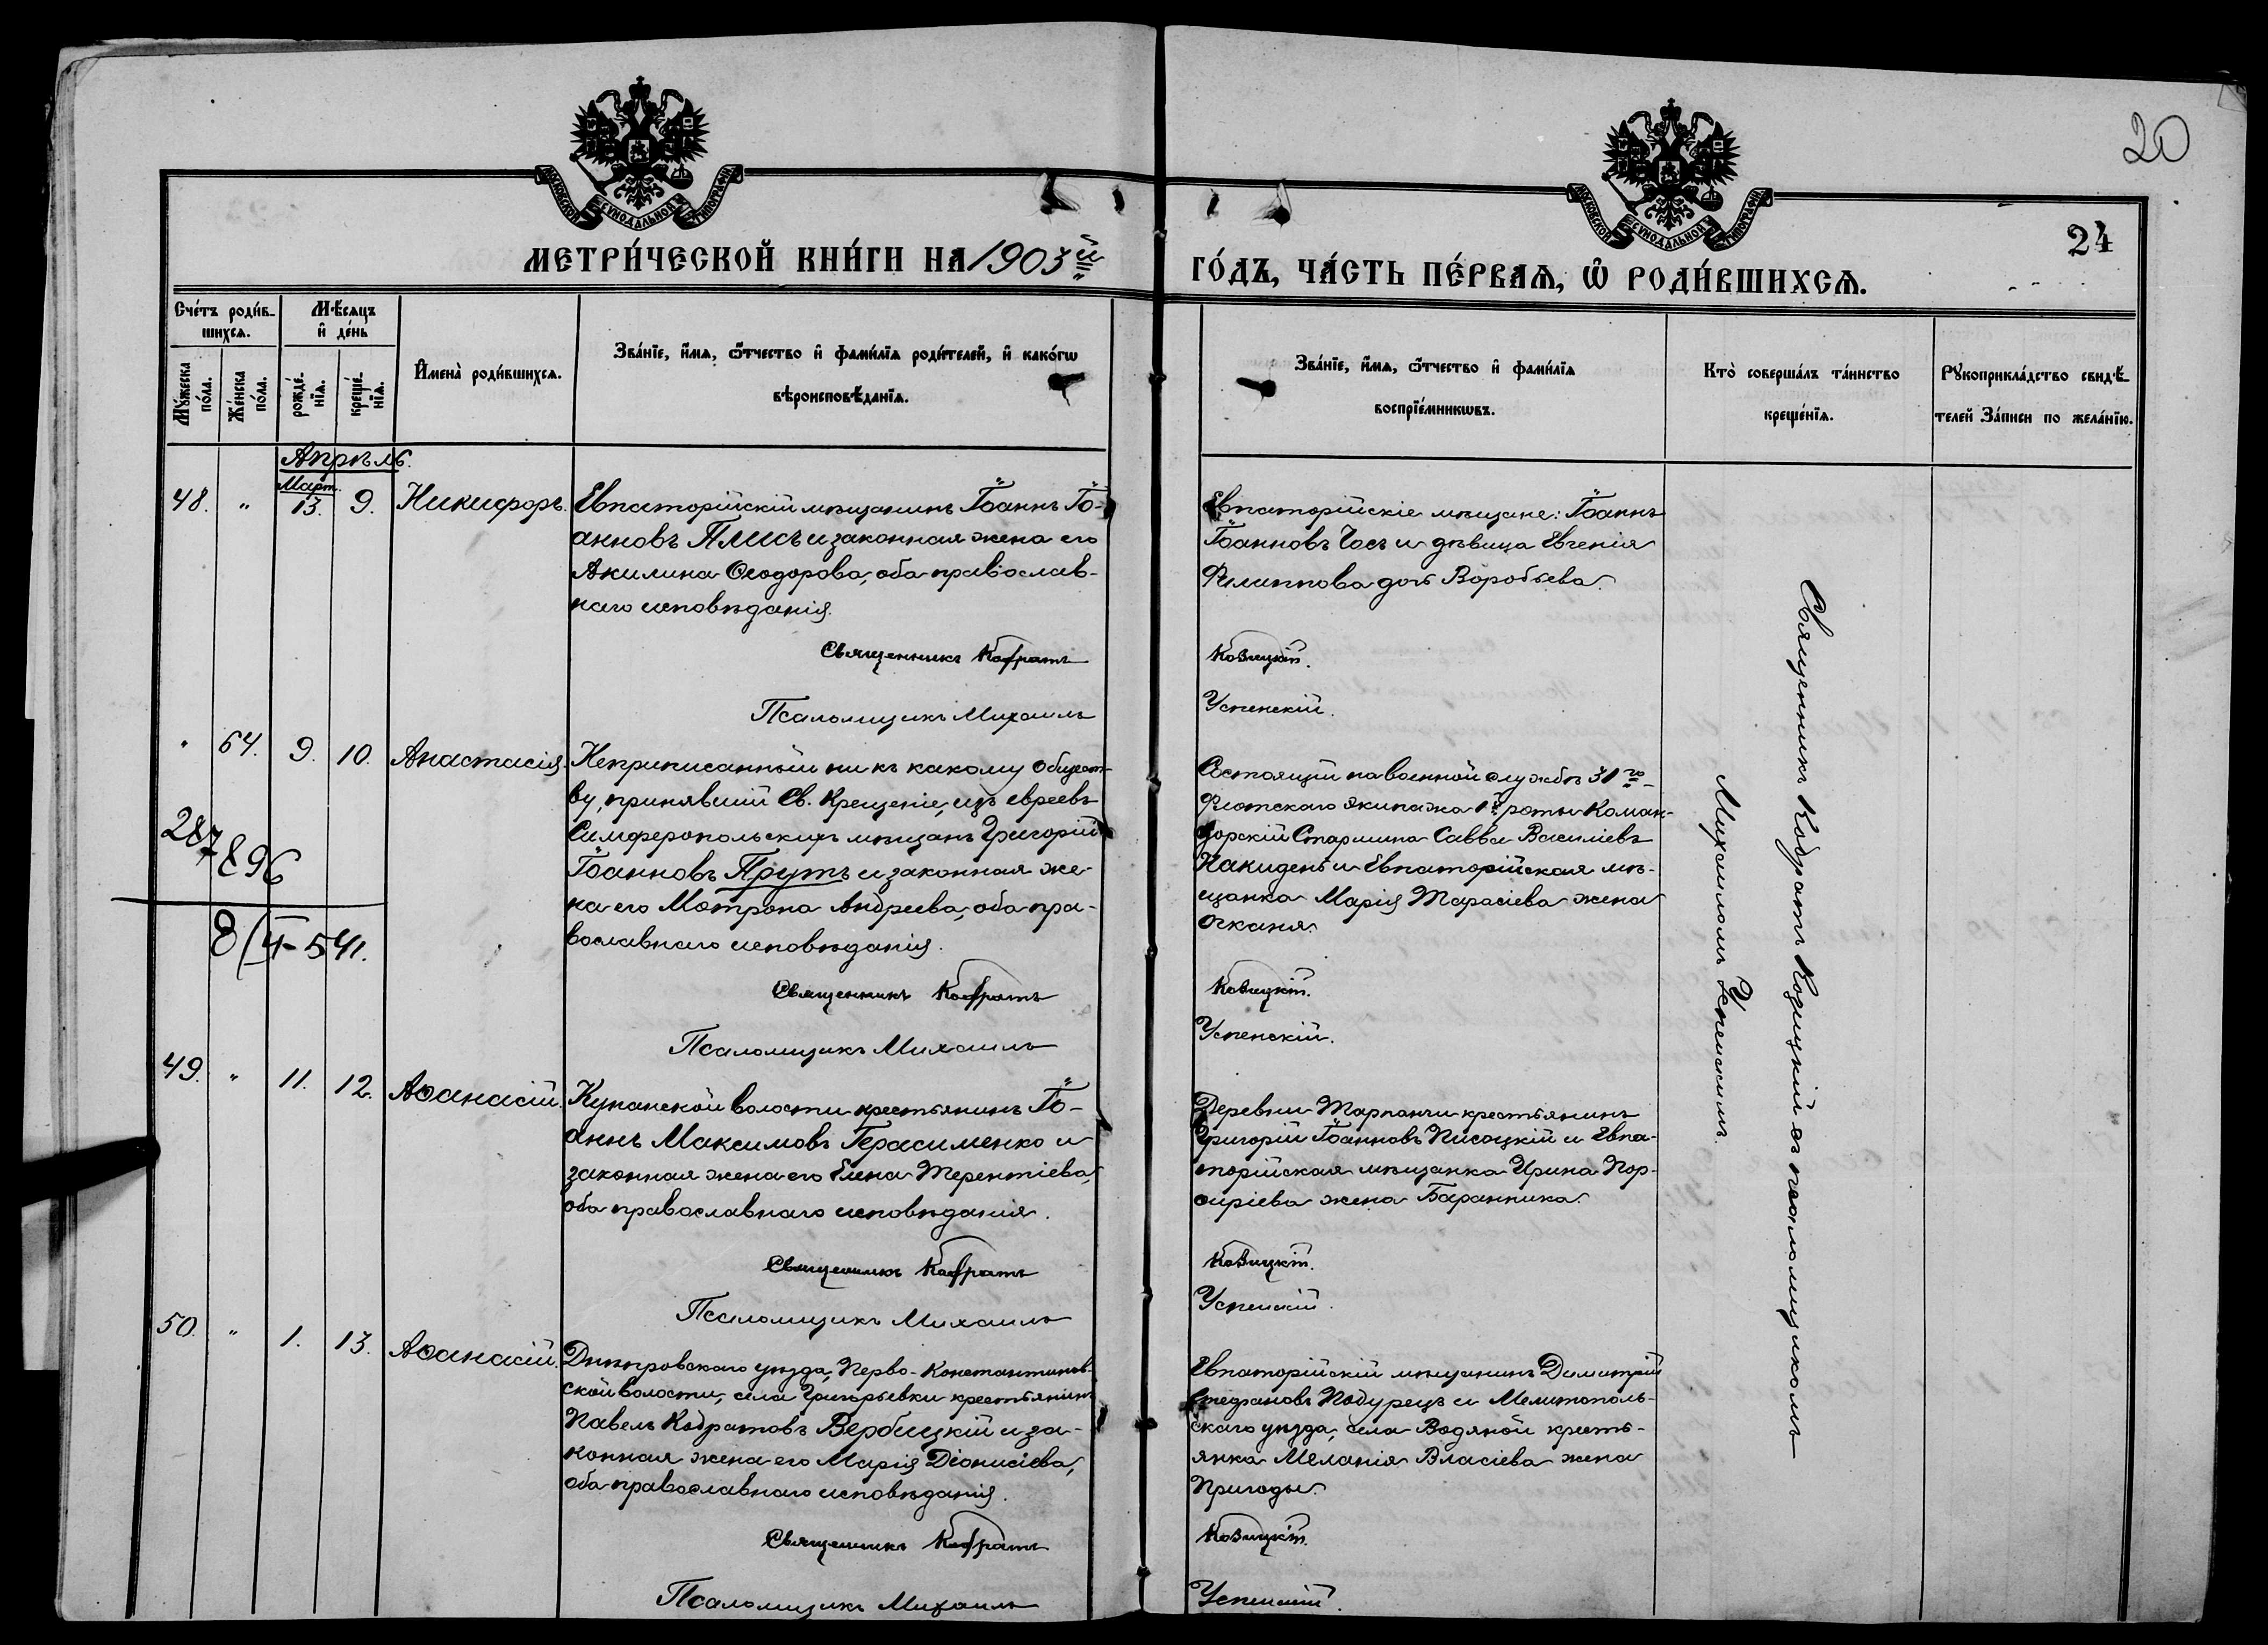 20
24
МОСКОВСКОЙ СѴНОДАЛЬНОЙ ТИПОГРАФІИ
МОСКОВСКОЙ СѴНОДАЛЬНОЙ ТИПОГРАФІИ
МЕТРИ́ЧЕСКОЙ КНИ́ГИ НА 1903й ГО́ДЪ, ЧА́СТЬ ПЕ́РВАѦ, Ѡ҆ РОДИ́ВШИХСѦ.
Сче́тъ роди́в-
шихсѧ.
Мꙋ́жеска по́ла.
Же́нска по́ла.
Мѣ́сѧцъ
и҆ де́нь
рожде́-нїѧ.
креще́-нїѧ.
И҆мена̀ роди́вшихсѧ.
Зва́нїе, и҆́мѧ, ѻ҆́тчество и҆ фами́лїѧ роди́телей, и҆ како́гѡ
вѣроисповѣ́данїѧ.
Зва́нїе, и҆́мѧ, ѻ҆́тчество и҆ фами́лїѧ
воспрїе́мникѡвъ.
Кто̀ соверша́лъ та́инство
креще́нїѧ.
Рꙋкоприкла́дство свидѣ́-
телей За́писи по жела́нїю.
Апрѣль.
48. " Март. 13. 9. Никифоръ.
Евпаторійскій мѣщанинъ Іоаннъ Іо-
анновъ Плисъ и законная жена его
Акилина Ѳеодорова, оба православ-
наго исповѣданія.
Священникъ Кодратъ
Псаломщикъ Михаилъ
Евпаторійскіе мѣщане: Іоаннъ
Іоанновъ Чосъ и дѣвица Евгенія
Филиппова дочь Воробьева.
Козицкій.
Успенскій.
" 64. 9. 10. Анастасія.
Неприписанный ни къ какому общест-
ву, принявшій Св. Крещеніе, изъ евреевъ
Симферопольскихъ мѣщанъ Григорій
Іоанновъ Прутъ и законная же-
на его Мотрона Андреева, оба пра-
вославнаго исповѣданія.
Священникъ Кодратъ
Псаломщикъ Михаилъ
Состоящій на военной службѣ 31го
Флотскаго Экипажа 1й роты Коман-
дорскій Старшина Савва Василіевъ
Накиденъ и Евпаторійская мѣ-
щанка Марія Тарасіева жена
Оскана.
Козицкій.
Успенскій.
287
896
8/4-541.
49. " 11. 12. Аѳанасій.
Кунанской волости крестьянинъ Іо-
аннъ Максимовъ Герасименко и
законная жена его Елена Терентіева,
оба православнаго исповѣданія.
Священникъ Кодратъ
Псаломщикъ Михаилъ
Деревни Тарпанчи крестьянинъ
Григорій Іоанновъ Писоцкій и Евпа-
торійская мѣщанка Ирина Пор-
фиріева жена Баранника.
Козицкій.
Успенскій.
50. " 1. 13. Аѳанасій.
Днѣпровскаго уѣзда, Перво-Константинов-
ской волости, села Григорьевки крестьянинъ
Павелъ Кодратовъ Вербицкій и за-
конная жена его Марія Діонисіева,
оба православнаго исповѣданія.
Священникъ Кодратъ
Псаломщикъ Михаилъ
Евпаторійскій мѣщанинъ Димитрій
Стефановъ Подурецъ и Мелитополь-
скаго уѣзда, села Водяной кресть-
янка Меланія Власіева жена
Пригоды.
Козицкій.
Успенскій.
Священникъ Кодратъ Козицкій съ псаломщикомъ
Михаиломъ Успенскимъ.